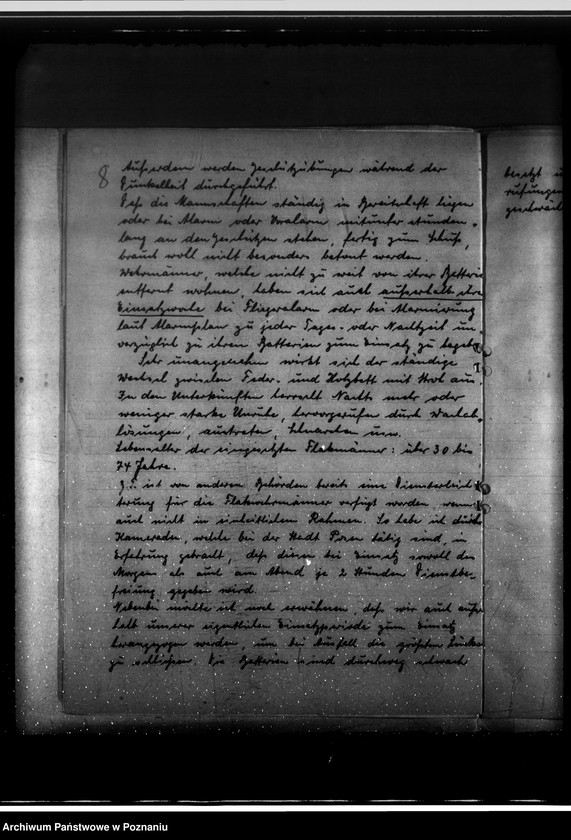 8
Außerdem werden Geschützübungen während der
Dunkelheit durchgeführt.
Daß die Mannschaften ständig in Bereitschaft liegen
oder bei Alarm oder Voralarm mitunter stunden-
lang an den Geschützen stehen, fertig zum Schuß,
braucht wohl nicht besonders betont werden.
Wehrmänner, welche nicht zu weit von ihrer Batterie
entfernt wohnen, haben sich auch außerhalb ihrer
Einsatzwoche bei Fliegeralarm oder bei Alarmierung
laut Alarmplan zu jeder Tages- oder Nachtzeit un-
verzüglich zu ihren Batterien zum Einsatz zu begeben
Sehr unangenehm wirkt sich der ständige
Wechsel zwischen Feder- und Holzbett mit Stroh aus.
In den Unterkünften herrscht Nachts mehr oder
weniger starke Unruhe, hervorgerufen durch Wachab-
lösungen, austreten, Schnarchen usw.
Lebensalter der eingesetzten Flakmänner: über 30 bis
74 Jahre.
Z.T. ist von anderen Behörden bereits eine
für die Flakwehrmänner verfügt worden, wenn
auch nicht in einheitlichem Rahmen. So habe ich durch
Kameraden, welche bei der Stadt Posen tätig sind, in
Erfahrung gebracht, daß diesen bei Einsatz sowohl des
Morgens als auch am Abend je 2 Stunden Dienstbe-
freiung gegeben wird.
Nebenbei möchte ich noch erwähnen, daß wir auch außer-
halb unserer eigentlichen Einsatzperiode zum Einsatz
herangezogen werden, um bei Ausfall die größten Lücken
zu schließen. Die Batterien sind durchweg schwach
besetzt
Archiwum Państwowe w Poznaniu